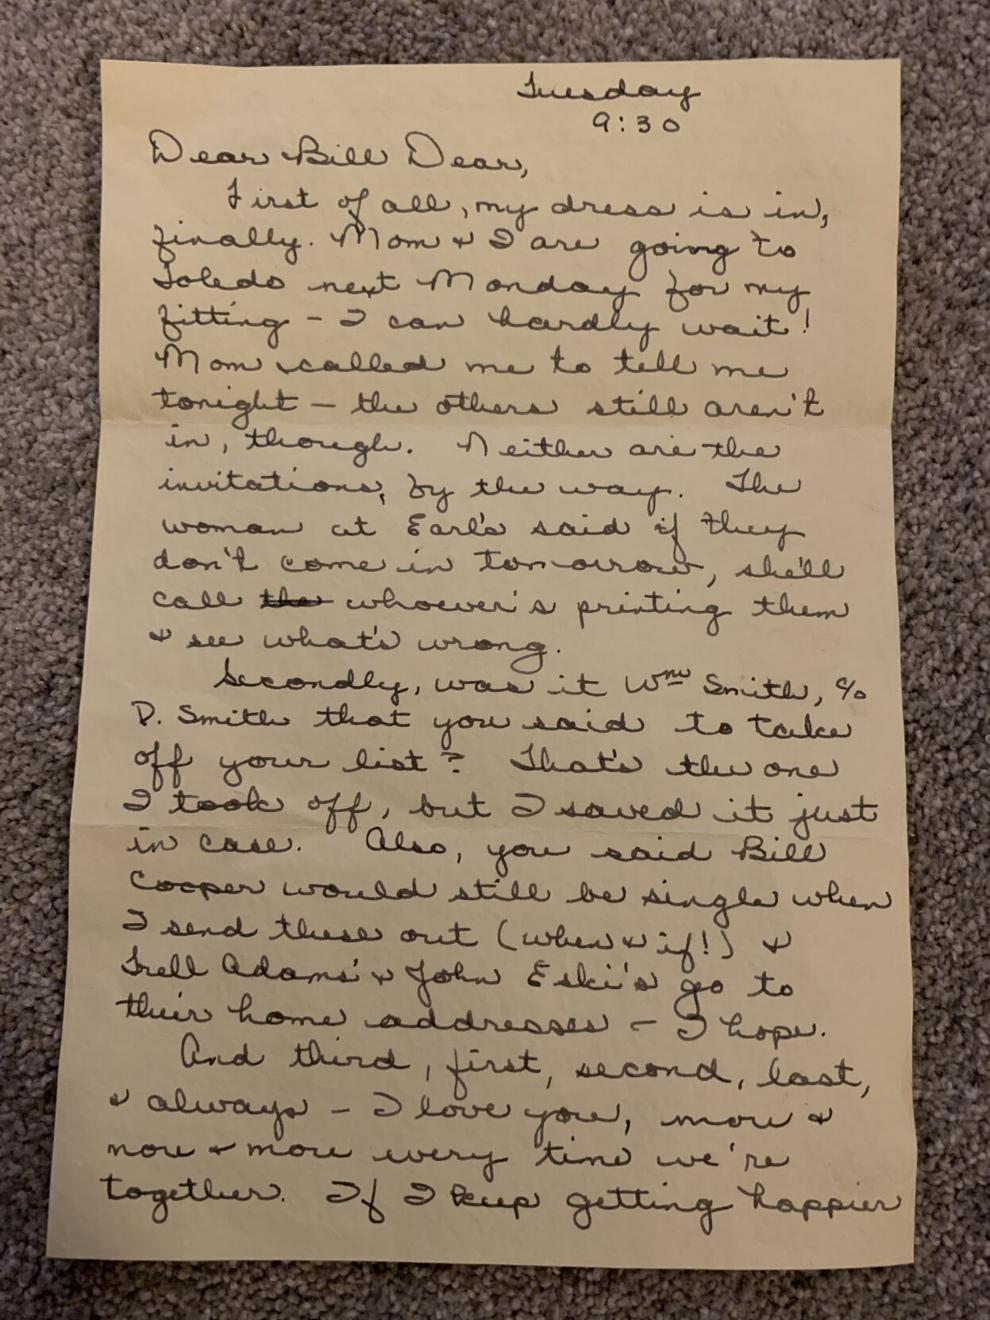 Tuesday
9:30
Dear Bill Dear,
First of all, my dress is in,
finally. Mom & I are going to
Toledo next Monday for my
fitting – I can hardly wait!
Mom called me to tell me
tonight – the others still aren't
in, though. Neither are the
invitations, by the way. The
woman at Earl's said if they
don't come in tomorrow, she'll
call the whoever's printing them
& see what's wrong.
Secondly, was it Wm Smith, c/o
D. Smith that you said to take
off your list? That's the one
I took off, but I saved it just
in case. Also, you said Bill
Cooper would still be single when
I send these out (when & if!) &
Trell Adams' & John Eski's go to
their home addresses – I hope.
And third, first, second, last,
& always – I love you, more &
more & more every time we're
together. If I keep getting happier